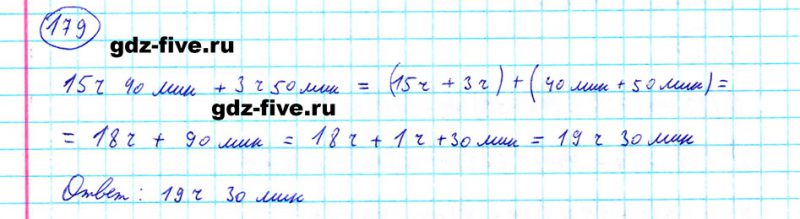 179
gdz-five.ru
15 ч 40 мин + 3 ч 50 мин = (15 ч + 3 ч) + (40 мин + 50 мин) =
gdz-five.ru
= 18 ч + 90 мин = 18 ч + 1 ч + 30 мин = 19 ч 30 мин
Ответ: 19 ч 30 мин